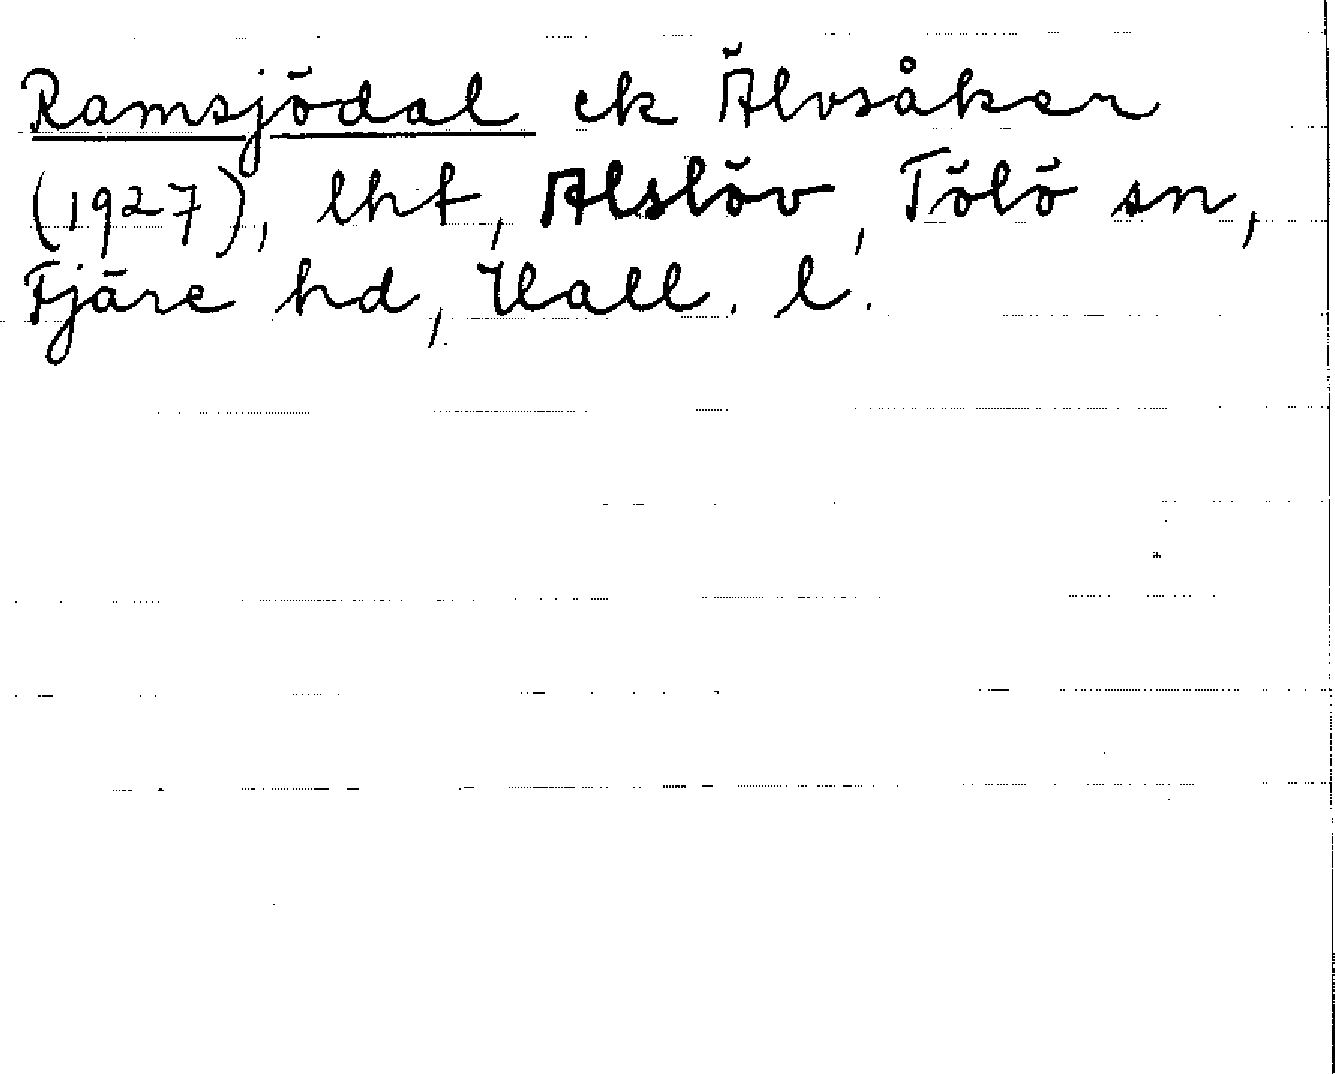 Ramsjödal ek Älvsåker
(1927), lht, Alslöv, Tölö sn,
Fjäre hd, Hall. l.